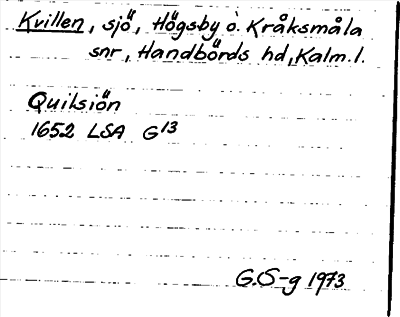 Kvillen, sjö, Högsby o. Kråksmåla
snr, Handbörds hd, Kalm.l.
Quilsiön
1652 LSA G13
G.S-g 1973